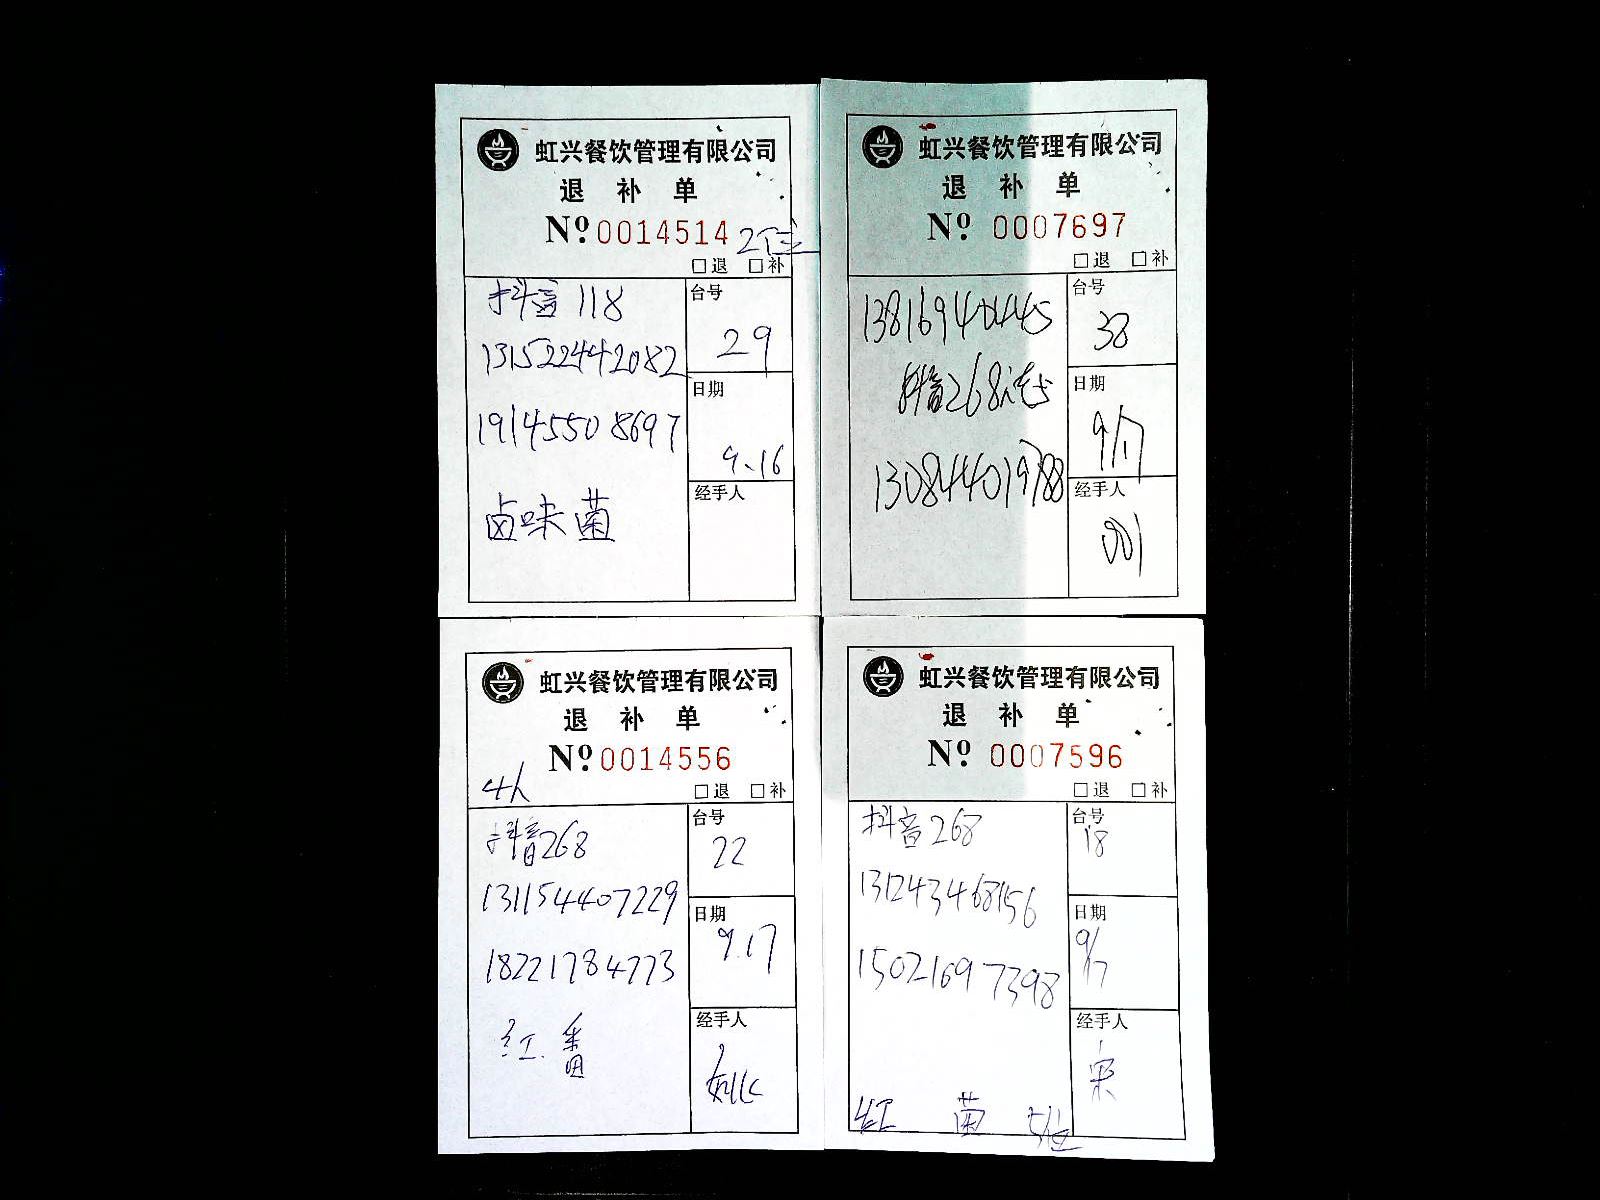 虹兴餐饮管理有限公司
退 补 单
Nº 0014514 2位
□退 □补
抖音 118
131522442082
19145508697
卤味菌
台号
29
日期
9.16
经手人
虹兴餐饮管理有限公司
退 补 单
Nº 0007697
□退 □补
抖音268
台号
38
日期
9/17
经手人
001
虹兴餐饮管理有限公司
退 补 单
Nº 0014556
4人
□退 □补
抖音268
131154407229
18221784773
红.番
台号
22
日期
9.17
经手人
虹兴餐饮管理有限公司
退 补 单
Nº 0007596
□退 □补
抖音268
131243468156
15021697398
红 菌 5位
台号
18
日期
9/17
经手人
宋